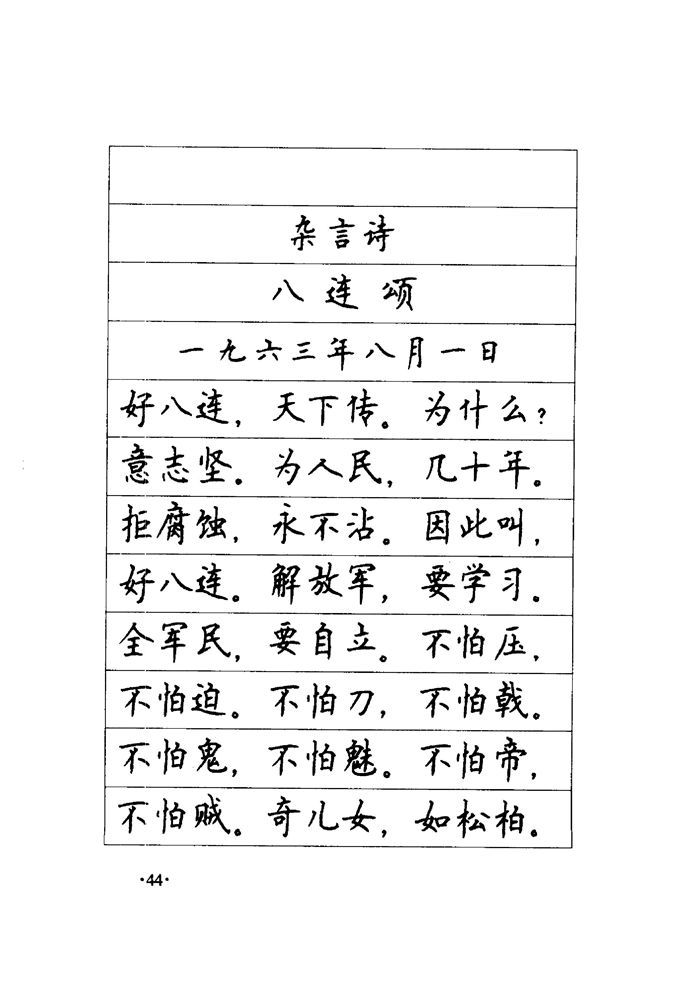 杂言诗
八连颂
一九六三年八月一日
好八连，天下传。为什么？
意志坚。为人民，几十年。
拒腐蚀，永不沾。因此叫，
好八连。解放军，要学习。
全军民，要自立。不怕压，
不怕迫。不怕刀，不怕戟。
不怕鬼，不怕魅。不怕帝，
不怕贼。奇儿女，如松柏。
·44·